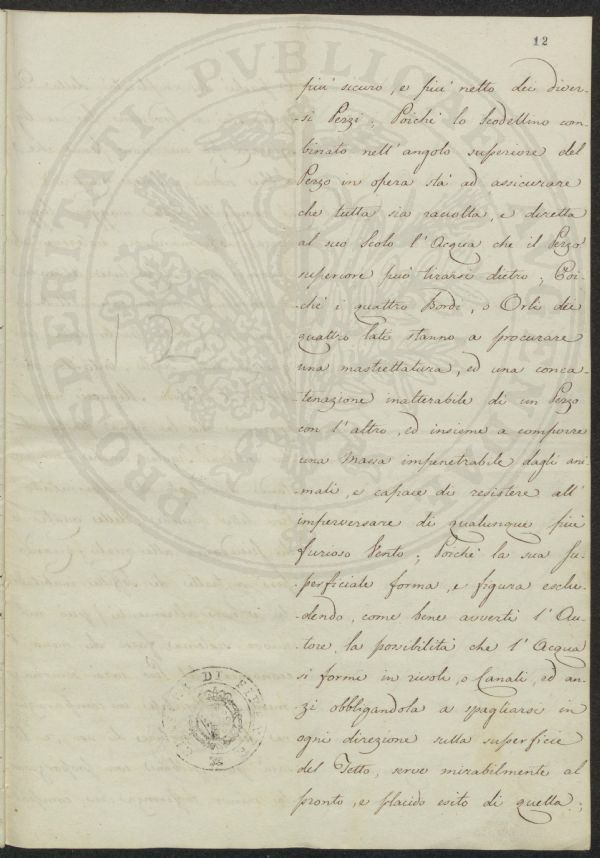 12
più sicuro, e più netto dei diver-
-si Pezzi; Poichè lo Scodellino com-
binato nell'angolo superiore del
Pezzo in opera stà ad assicurare
che tutta sia raccolta, e diretta
al suo Scolo l'Acqua che il Pezzo
superiore può tirarsi dietro; Poi-
-chè i quattro Bordi, o Orli dei
quattro lati stanno a procurare
una mastiettatura, ed una conca-
-tenazione inalterabile di un Pezzo
con l'altro, ed insieme a comporre
una Massa impenetrabile dagli ani-
-mali, e capace di resistere all'
imperversare di qualunque più
furioso Vento; Poichè la sua Su-
-perficiale forma, e figura esclu-
-dendo, come bene avvertì l'Au-
-tore, la possibilità che l'Acqua
si formi in rivoli, o Canali, ed an-
-zi obbligandola a spagliarsi in
ogni direzione sulla superficie
del Tetto, serve mirabilmente al
pronto, e placido esito di quella;
12
PROSPERITATI PVBLICAE